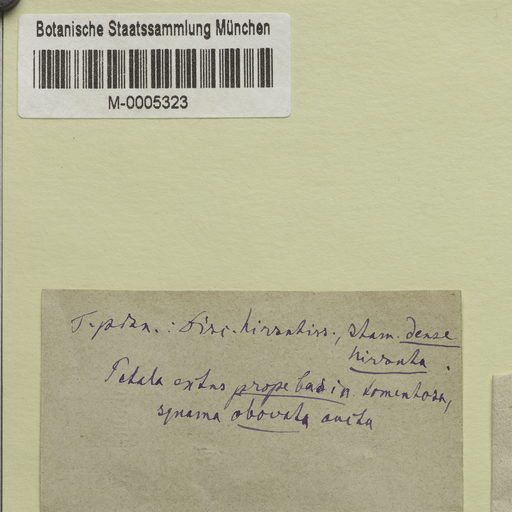 Botanische Staatssammlung München
M-0005323
Disc. hirsutiss., stam. dense
hirsuta.
Petala extus prope basin tomentosa,
squama obovata aucta